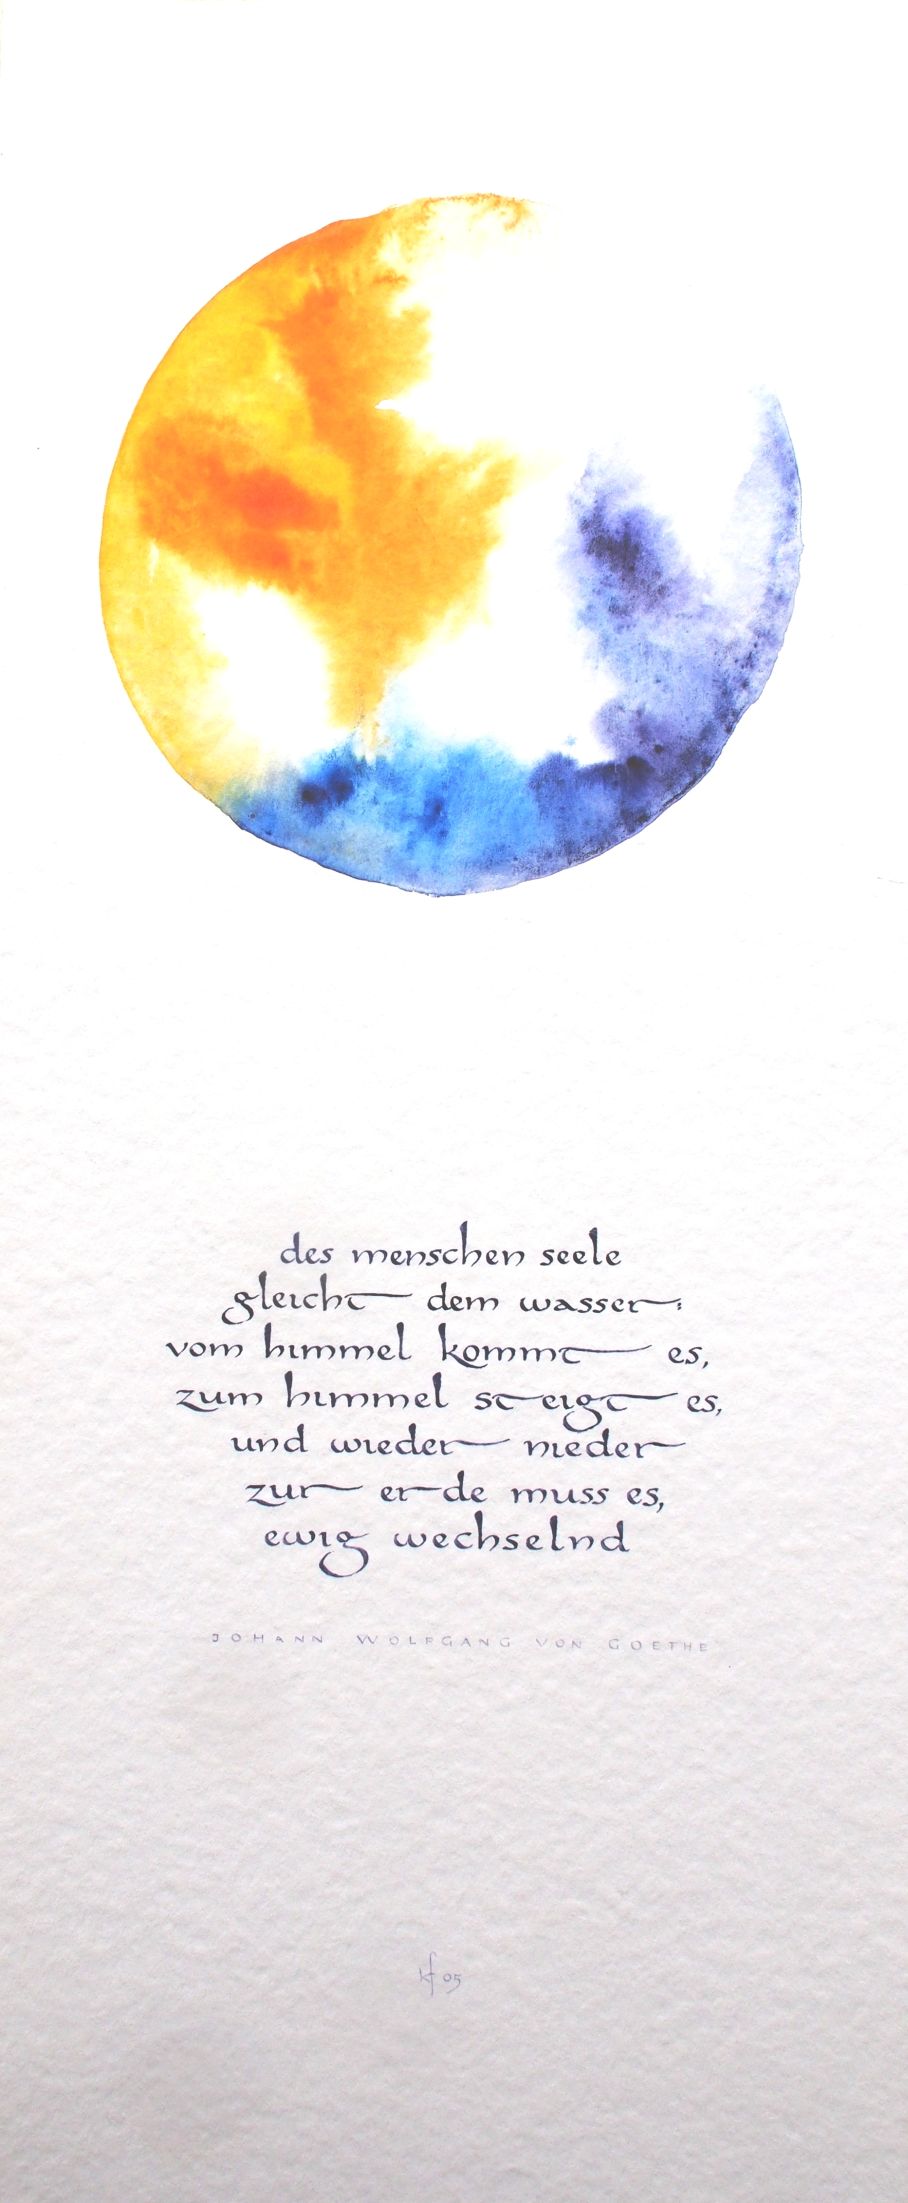 des menschen seele
gleicht dem wasser:
vom himmel kommt es,
zum himmel steigt es,
und wieder nieder
zur erde muss es,
ewig wechselnd
JOHANN WOLFGANG VON GOETHE
kf 05